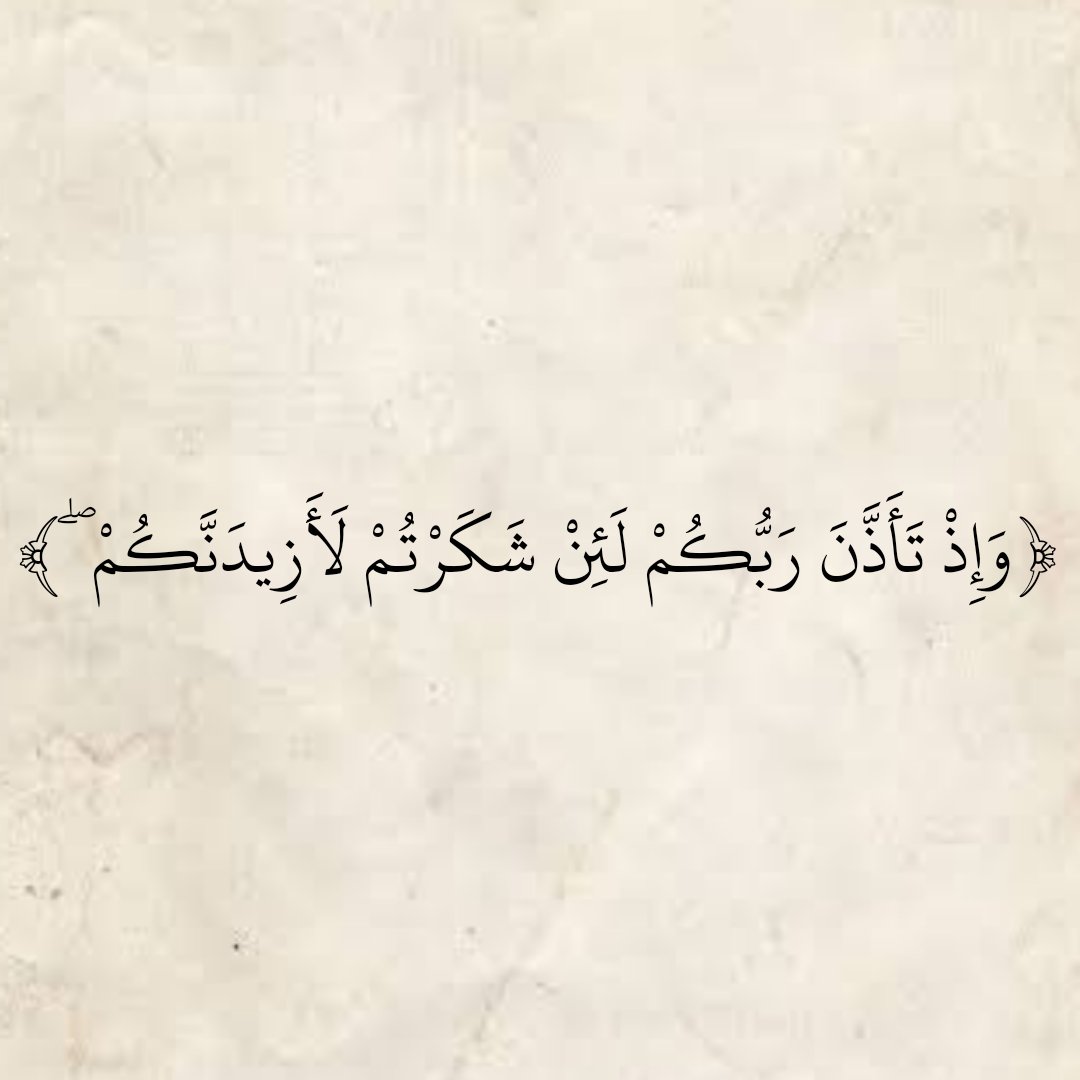 ﴿وَإِذْ تَأَذَّنَ رَبُّكُمْ لَئِنْ شَكَرْتُمْ لَأَزِيدَنَّكُمْ ۖ﴾